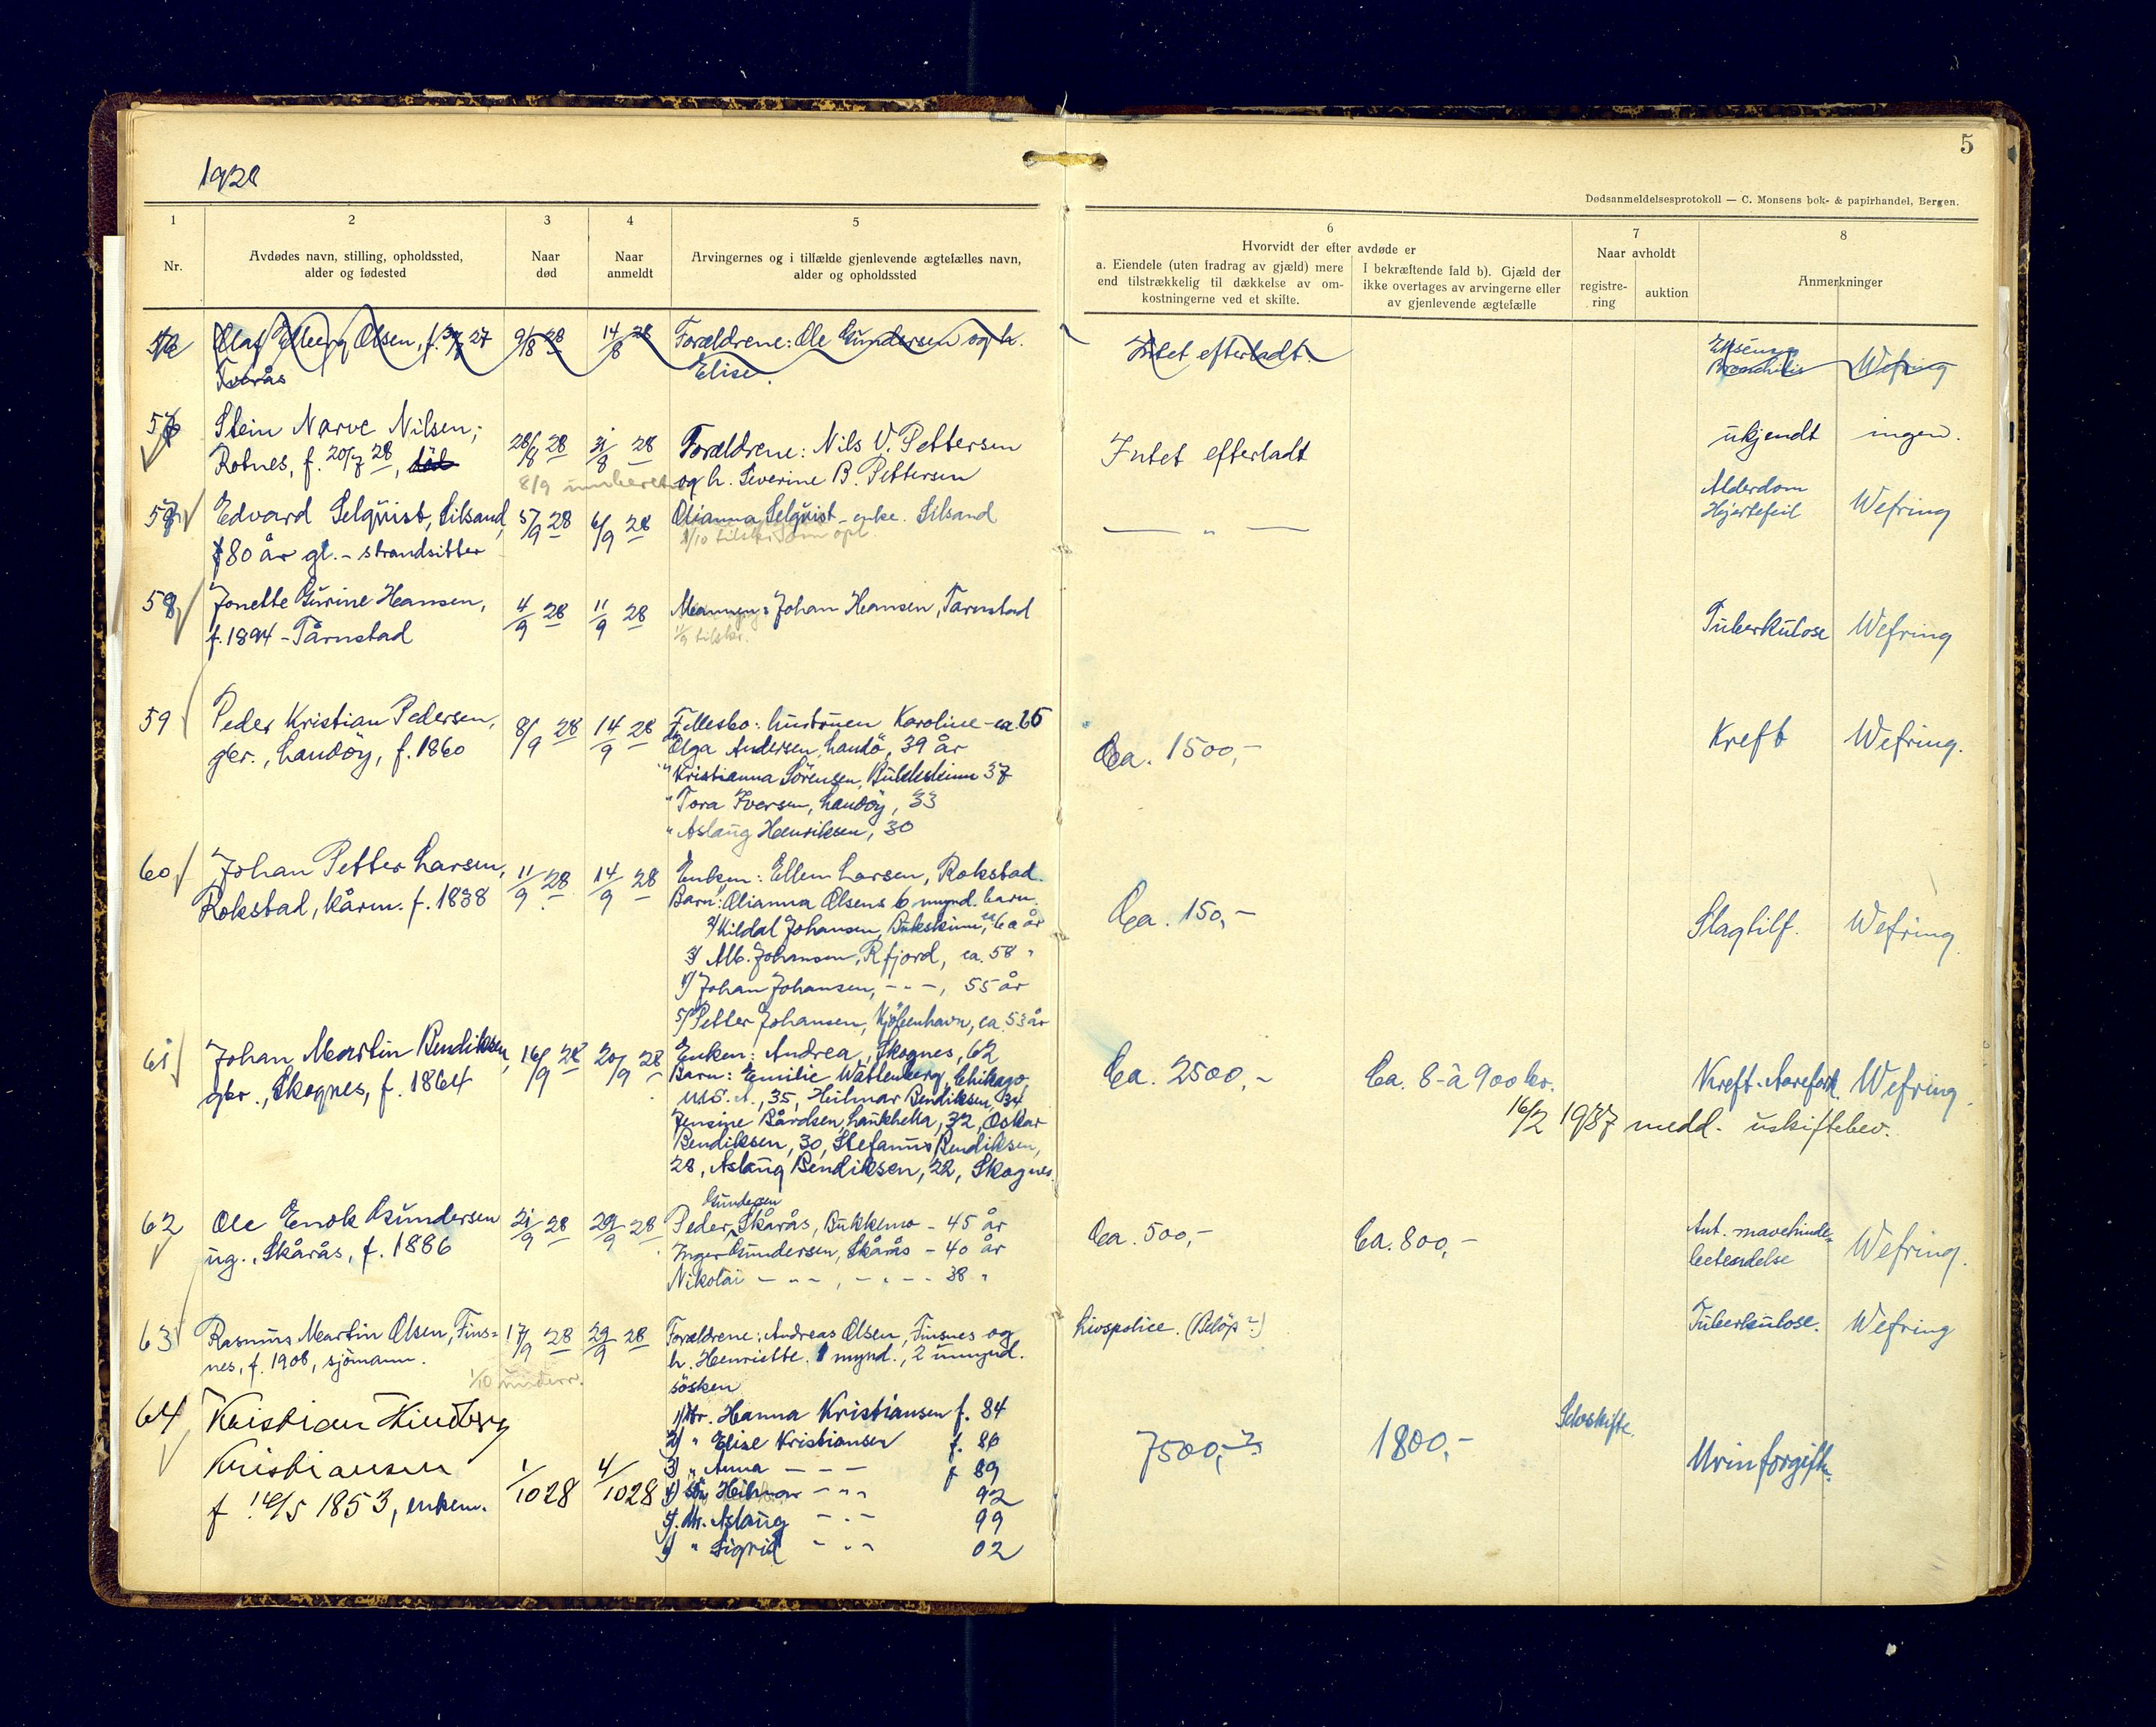 5
1928
Dødsanmeldelsesprotokoll — C. Monsens bok- & papirhandel, Bergen.
1
2
3
4
5
6
7
8
Nr.
Avdødes navn, stilling, opholdssted,
alder og fødested
Naar
død
Naar
anmeldt
Arvingernes og i tilfælde gjenlevende ægtefælles navn,
alder og opholdssted
Hvorvidt der efter avdøde er
a. Eiendele (uten fradrag av gjæld) mere
end tilstrækkelig til dækkelse av om-
kostningerne ved et skifte.
I bekræftende fald b). Gjæld der
ikke overtages av arvingerne eller
av gjenlevende ægtefælle
Naar avholdt
registre-
ring
auktion
Anmerkninger
Olaf Olsen, f. 27 9/8 28 14/8 28 Forældrene: Ole Gundersen og h.
Tverås Elise.
Intet efterladt.
Bronchitis Wefring
Stein Narve Nilsen,
Rotnes, f. 20/7 28,
28/8 28 31/8 28
Forældrene: Nils V. Pettersen
og h. Severine B. Pettersen
8/9
Intet efterladt
ukjendt ingen.
57 Edvard Selqvist, Silsand,
80 år gl. - strandsitter
5/9 28 6/9 28
Olianna Selqvist - enke. Silsand
— " —
Alderdom
Hjertefeil Wefring
58 Jonette Gurine Hansen,
f. 1894 - Tårnstad
4/9 28 11/9 28
Mannen: Johan Hansen, Tårnstad
Tuberkulose Wefring
59 Peder Kristian Pedersen,
gbr., Landøy, f. 1860
8/9 28 14/9 28
Fellesbo: hustruen Karoline - ca. 65
Olga Andersen, Landø, 39 år
" Kristianna Sørensen, Bukkskinn 37
" Tora Iversen, Landøy, 33
" Aslaug Henriksen, 30
Ca. 1500,-
Kreft Wefring.
60 Johan Petter Larsen,
Rokstad, kårm. f. 1838
11/9 28 14/9 28
Enken: Ellen Larsen, Rokstad.
Barn: Olianna Olsens 6 mynd. barn.
2) Kildal Johansen, Bukskinn,
3) Alb. Johansen, Rfjord, ca. 58 "
4) Johan Johansen, - " -, 55 år
5) Petter Johansen, Kjøbenhavn, ca. 53 år
Ca. 150,-
Slagtilf. Wefring
61 Johan Martin Bendiksen,
gbr., Skognes, f. 1864
16/9 28 20/9 28
Enken: Andrea, Skognes, 62
Barn: Emilie Wattenberg, Chikago,
U.S.A., 35, Hilmar Bendiksen, 34
Jensine Bårdsen, Laukhella, 32, Oskar
Bendiksen, 30, Stefanus Bendiksen,
28, Aslaug Bendiksen, 22, Skognes.
Ca. 2500,-
Ca. 8- à 900 kr.
Kreft. Wefring.
16/2 1937 medd. uskiftebev.
62 Ole Enok Gundersen
ug., Skårås, f. 1886
21/9 28 29/9 28
Gundersen
Peder, Skårås, Bukkemo - 45 år
Inger Gundersen, Skårås - 40 år
Nikolai - " -, - " - 38 "
Ca. 500,-
Ca. 800,-
Wefring.
63 Rasmus Martin Olsen, Fins=
nes, f. 1908, sjømann.
17/9 28 29/9 28
Forældrene: Andreas Olsen, Finsnes og
h. Henriette. 1 mynd., 2 umynd.
søsken
1/10 underr.
Livspolice. (Beløp?)
Tuberkulose. Wefring
64 Kristian
Kristiansen
f 5 1853, enkem.
1/10 28 4/10 28
1) Hanna Kristiansen f. 84
2) " Elise Kristiansen f. 86
3) " Anna - - - f 89
4) Søn Hilmar - " - 92
5) Aslaug - " - 99
6) " Sigrid - " - 02
7500,-
1800,-
Selvskifte.
Urinforgiftn.